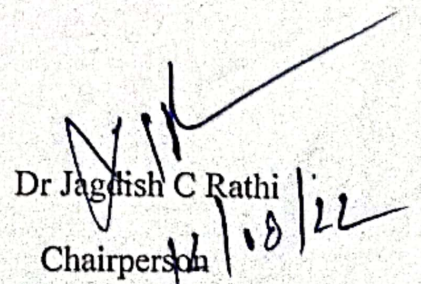 Dr Jagdish C Rathi
Chairperson